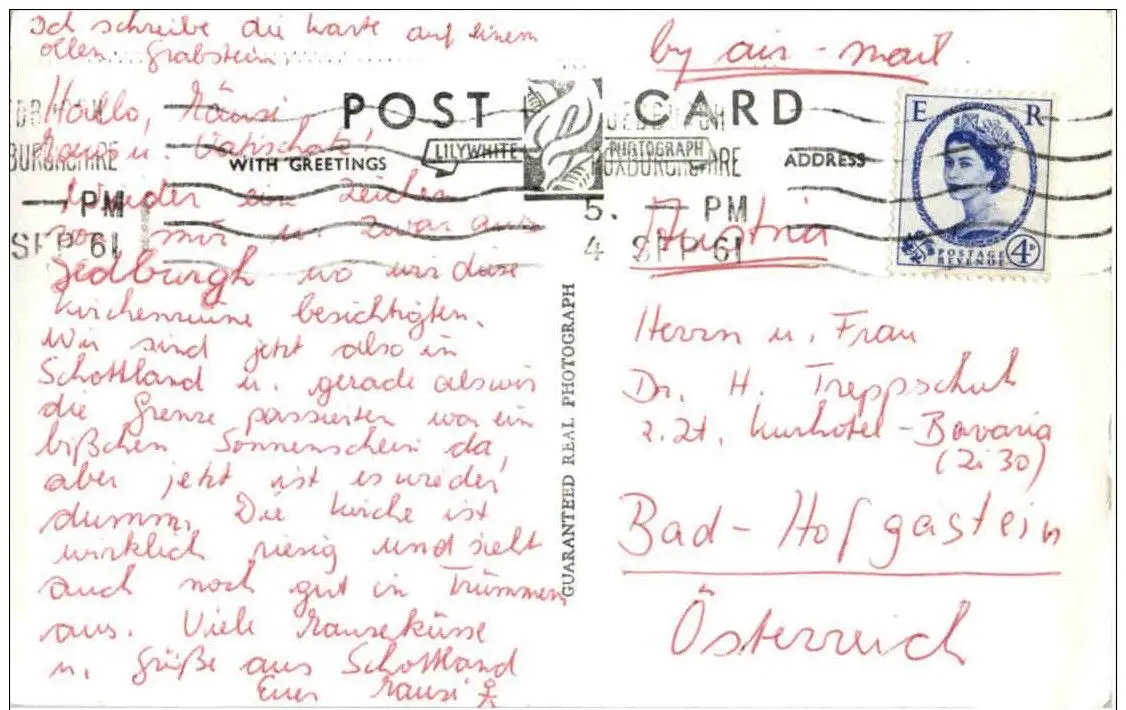 Ich schreibe die Karte auf einem
ollen Grabstein
POST CARD
WITH GREETINGS
LILYWHITE
PHOTOGRAPH
ADDRESS
Hallo,
u.
Wieder ein Zeichen
von mir u. zwar aus
Jedburgh wo wir diese
Kirchenruine besichtigten.
Wir sind jetzt also in
Schottland u. gerade als wir
die Grenze passierten war ein
bißchen Sonnenschein da,
aber jetzt ist es wieder
dumm. Die Kirche ist
wirklich riesig und sieht
auch noch gut in Trümmern
aus. Viele Mauseküsse
u. Grüße aus Schottland
Eure Mausi
GUARANTEED REAL PHOTOGRAPH
by air-mail.
E R
POSTAGE
REVENUE
4D
JEDBURGH
ROXBURGHSHIRE
5. — PM
4 SEP 61
Austria
Herrn u. Frau
Dr. H. Treppschuh
z. Zt. Kurhotel-Bavaria
(Zi 30)
Bad-Hofgastein
Österreich